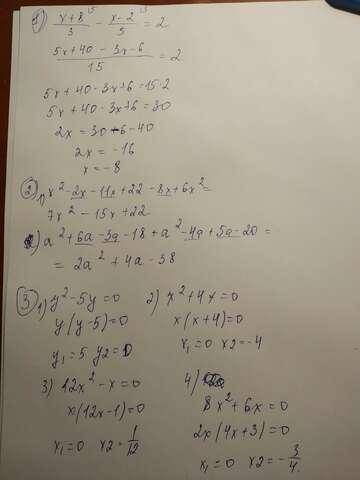 1) (x+8)/3 ⁽⁵ - (x-2)/5 ⁽³ = 2
(5x+40 - 3x-6)/15 = 2
5x+40-3x+6=15·2
5x+40-3x+6=30
2x=30-6-40
2x=-16
x=-8
2) 1) x²-2x-11x+22-8x+6x²=
7x²-15x+22
2) a²+6a-3a-18+a²-4a+5a-20=
= 2a²+4a-38
3) 1) y²-5y=0 2) x²+4x=0
y(y-5)=0 x(x+4)=0
y₁=5 y2=0 x₁=0 x2=-4
3) 12x²-x=0 4)
x(12x-1)=0 8x²+6x=0
x₁=0 x2=1/12 2x(4x+3)=0
x₁=0 x2=-3/4